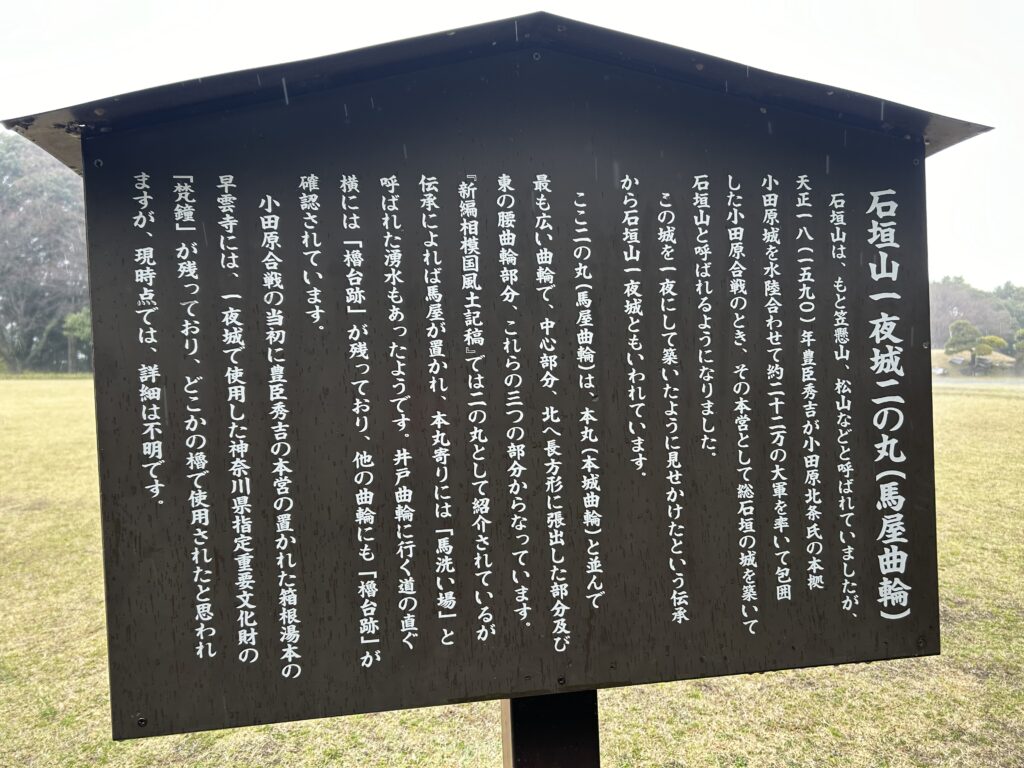 石垣山一夜城二の丸(馬屋曲輪)
石垣山は、もと笠懸山、松山などと呼ばれていましたが、
天正一八(一五九〇)年豊臣秀吉が小田原北条氏の本拠
小田原城を水陸合わせて約二十二万の大軍を率いて包囲
した小田原合戦のとき、その本営として総石垣の城を築いて
石垣山と呼ばれるようになりました。
この城を一夜にして築いたように見せかけたという伝承
から石垣山一夜城ともいわれています。
ここ二の丸(馬屋曲輪)は、本丸(本城曲輪)と並んで
最も広い曲輪で、中心部分、北へ長方形に張出した部分及び
東の腰曲輪部分、これらの三つの部分からなっています。
『新編相模国風土記稿』では二の丸として紹介されているが
伝承によれば馬屋が置かれ、本丸寄りには「馬洗い場」と
呼ばれた湧水もあったようです。井戸曲輪に行く道の直ぐ
横には「櫓台跡」が残っており、他の曲輪にも「櫓台跡」が
確認されています。
小田原合戦の当初に豊臣秀吉の本営の置かれた箱根湯本の
早雲寺には、一夜城で使用した神奈川県指定重要文化財の
「梵鐘」が残っており、どこかの櫓で使用されたと思われ
ますが、現時点では、詳細は不明です。